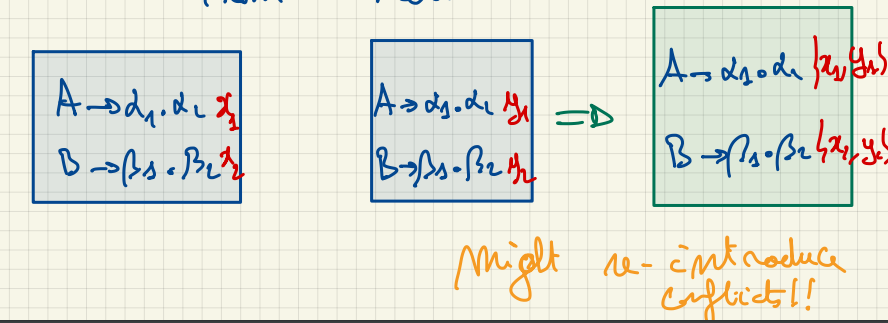 A → α₁.α₂ x₁
B → β₁.β₂ x₂
A → α₁.α₂ y₁
B → β₁.β₂ y₂
⇒
A → α₁.α₂ {x₁,y₁}
B → β₁.β₂ {x₂,y₂}
Might re-introduce
conflicts!!